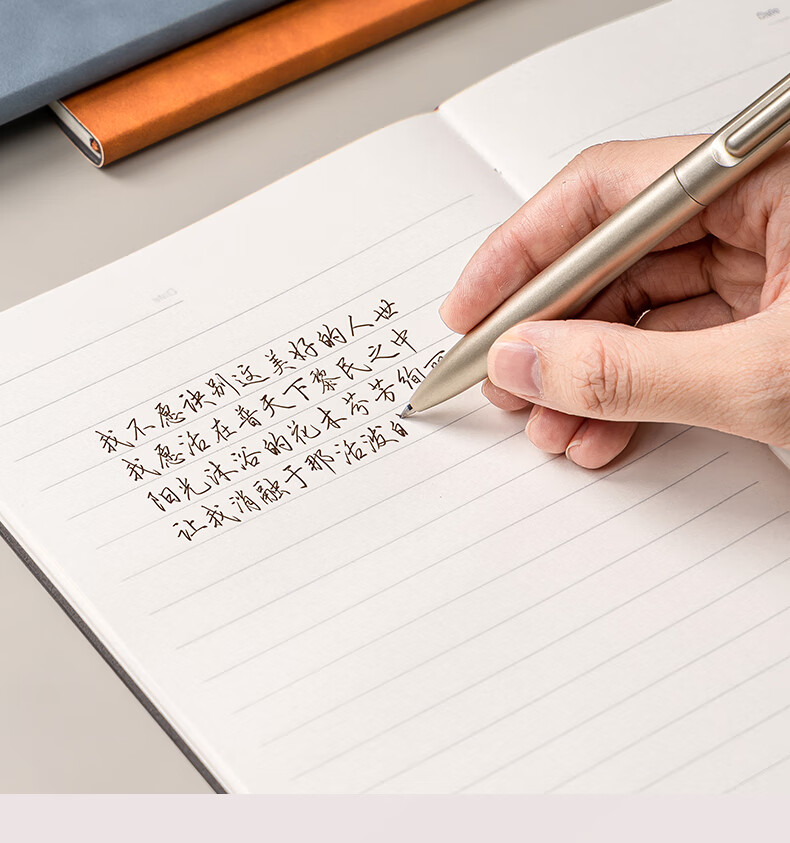 Date
Date
我不愿诀别这美好的人世
我愿活在普天下黎民之中
阳光沐浴的花木芬芳绚
让我消融于那活泼自